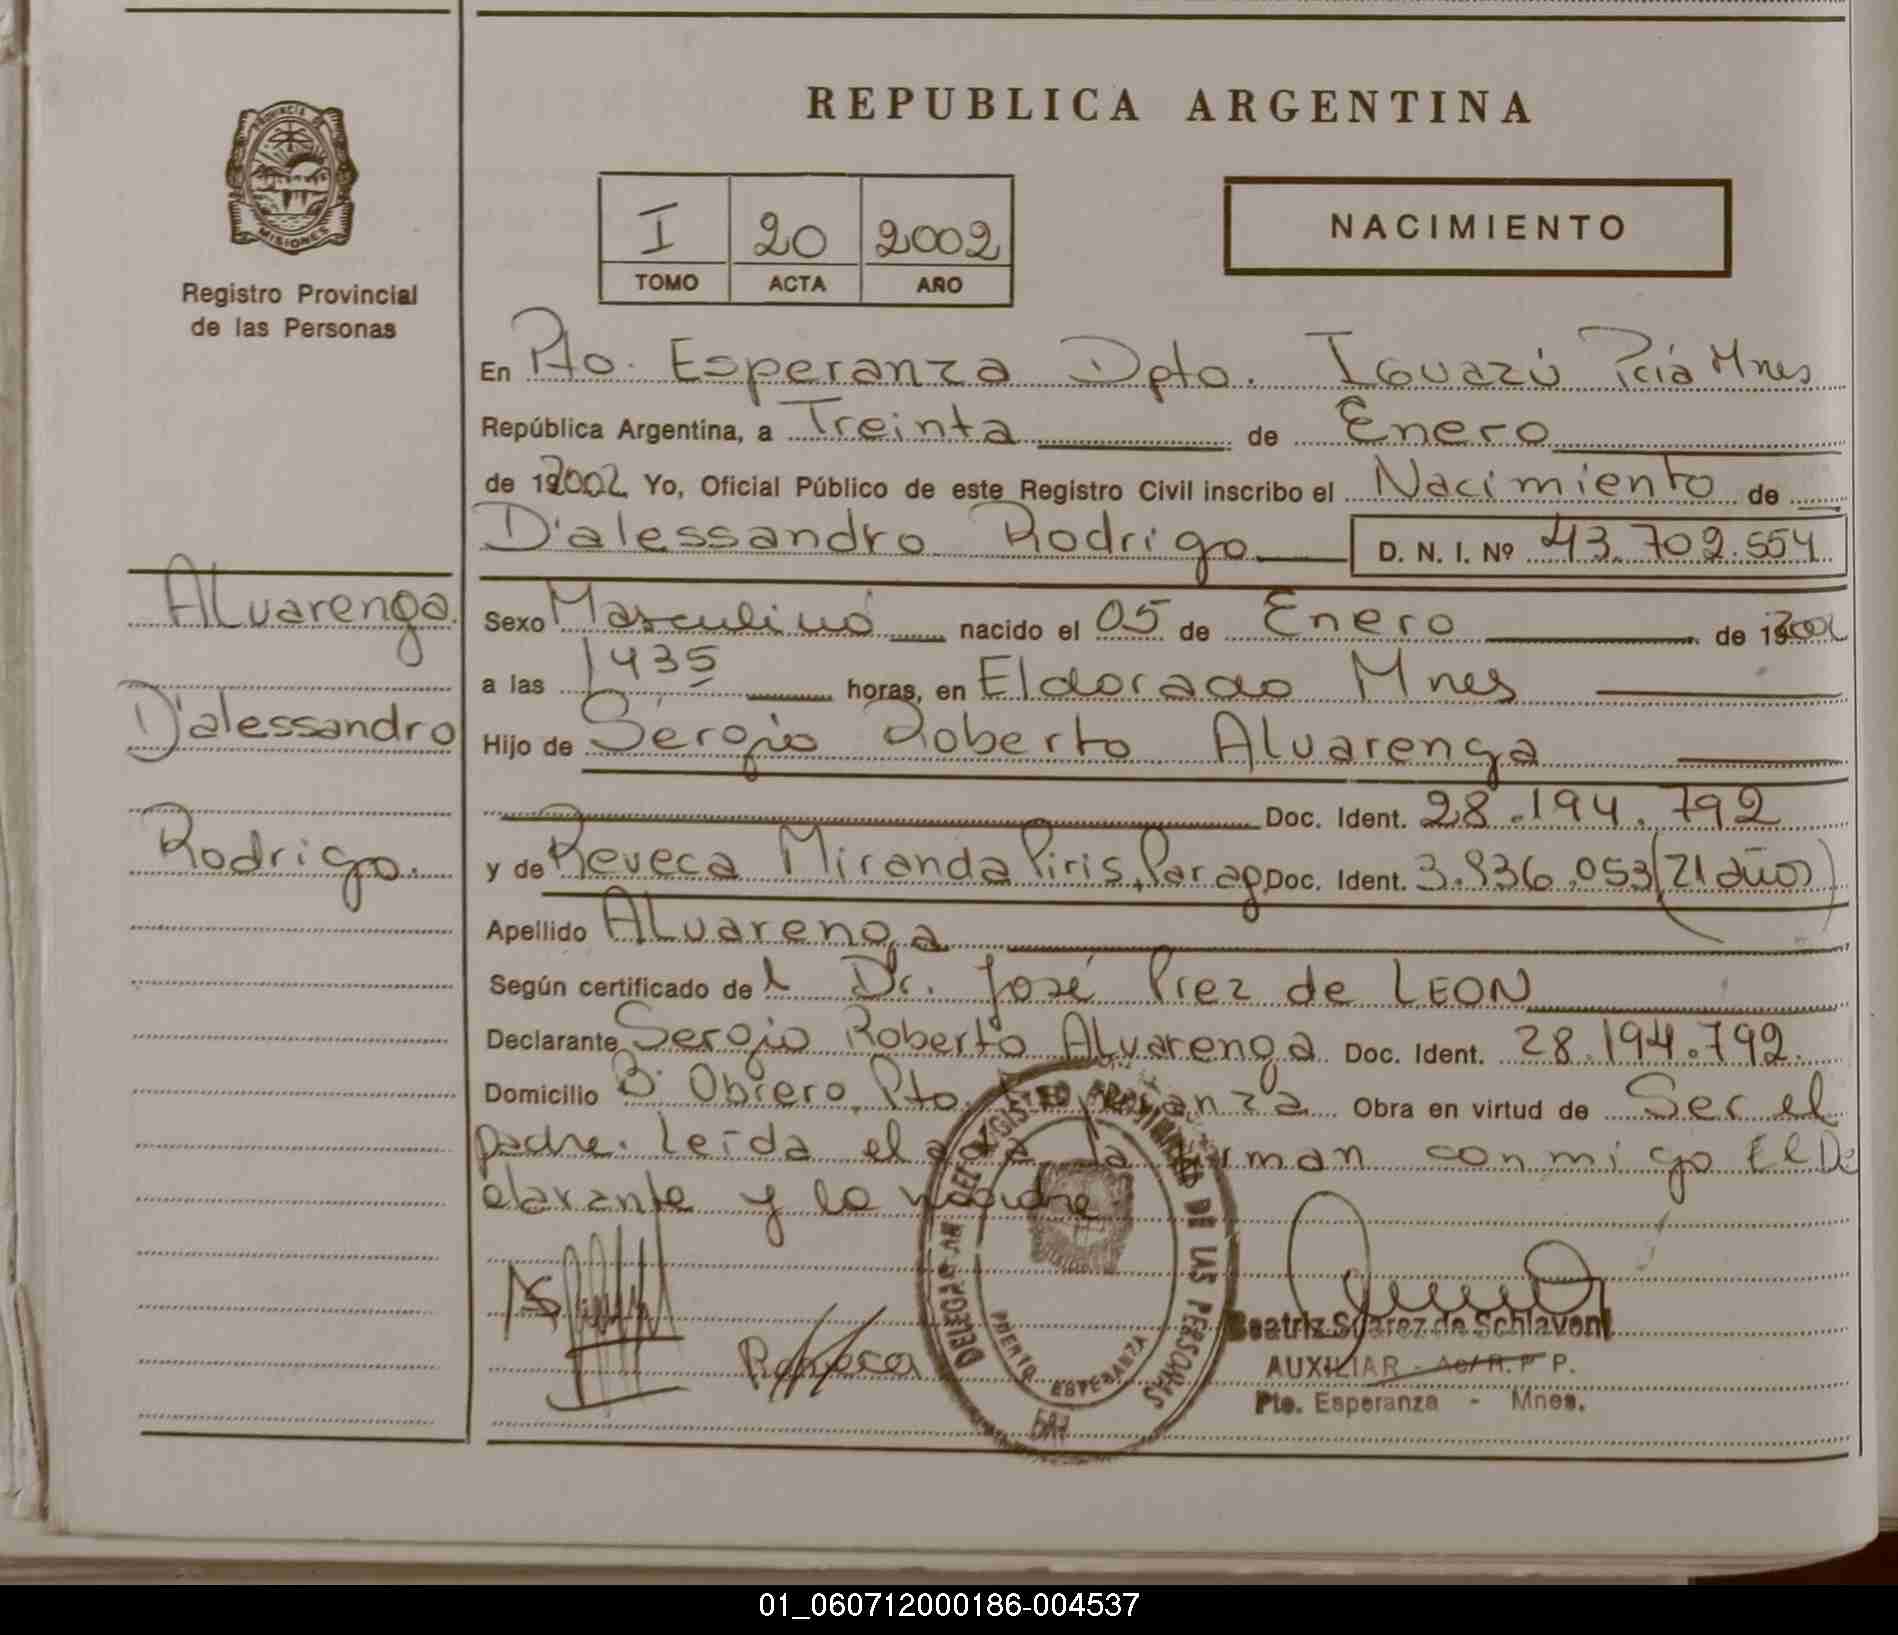 REPUBLICA ARGENTINA
PROVINCIA DE
MISIONES
Registro Provincial
de las Personas
I 20 2002
TOMO ACTA AÑO
NACIMIENTO
En Pto. Esperanza Dpto. Iguazú Pcia Mnes
República Argentina, a Treinta de Enero
de 192002 Yo, Oficial Público de este Registro Civil inscribo el Nacimiento de
D'alessandro Rodrigo D. N. I. Nº 43.702.554
Alvarenga
D'alessandro
Rodrigo.
Sexo Masculino nacido el 05 de Enero de 192002
a las 1435 horas, en Eldorado Mnes
Hijo de Sergio Roberto Alvarenga
Doc. Ident. 28.194.792
y de Reveca Miranda Piris, Parag Doc. Ident. 3.836.053 (21 años)
Apellido Alvarenga
Según certificado del Dr. José Prez de LEON
Declarante Sergio Roberto Alvarenga Doc. Ident. 28.194.792.
Domicilio Bº Obrero Pto. Esperanza Obra en virtud de Ser el
padre. Leída el acta la firman conmigo El De
clarante y la madre
Reveca
DELEGACION DEL REGISTRO PROVINCIAL DE LAS PERSONAS
PUERTO ESPERANZA
Beatriz Suarez de Schiavoni
AUXILIAR - Ac/ R. P P.
Pto. Esperanza - Mnes.
01_060712000186-004537